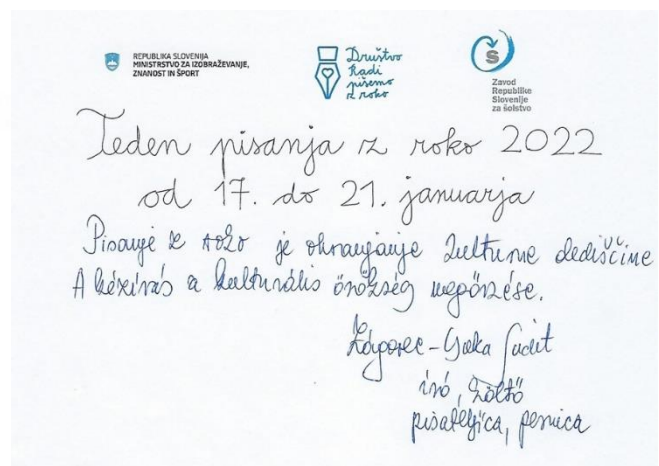 REPUBLIKA SLOVENIJA
MINISTRSTVO ZA IZOBRAŽEVANJE,
ZNANOST IN ŠPORT
Društvo
Radi
pišemo
z roko
Zavod
Republike
Slovenije
za šolstvo
Teden pisanja z roko 2022
od 17. do 21. januarja
Pisanje z roko je ohranjanje kulturne dediščine
A kézírás a kulturális örökség megőrzése.
Zágorec-Csuka Judit
író, költő
pisateljica, pesnica